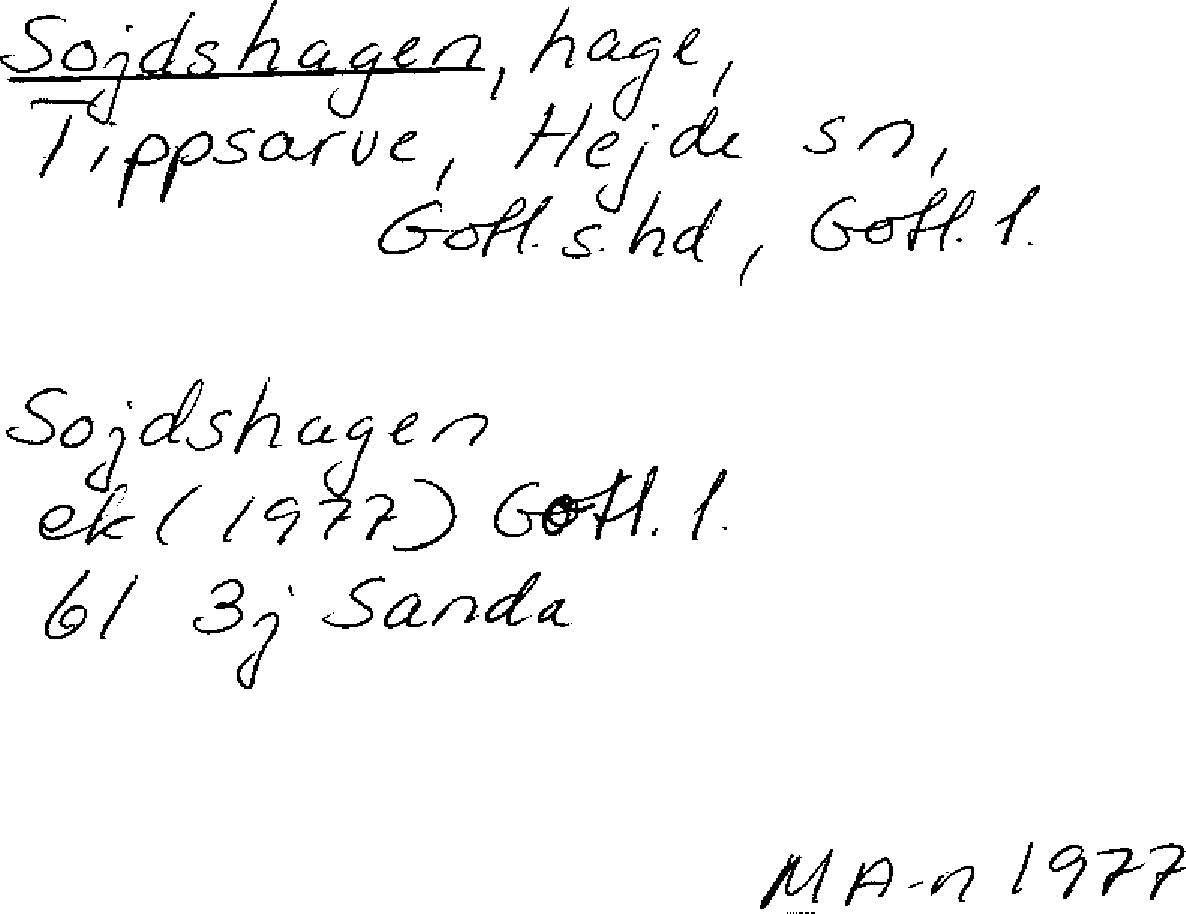 Sojdshagen, hage,
Tippsarve, Hejde sn,
Gotl. s. hd, Gotl. l.
Sojdshagen
ek (1977) Gotl. l.
61 3j Sanda
MA-n 1977